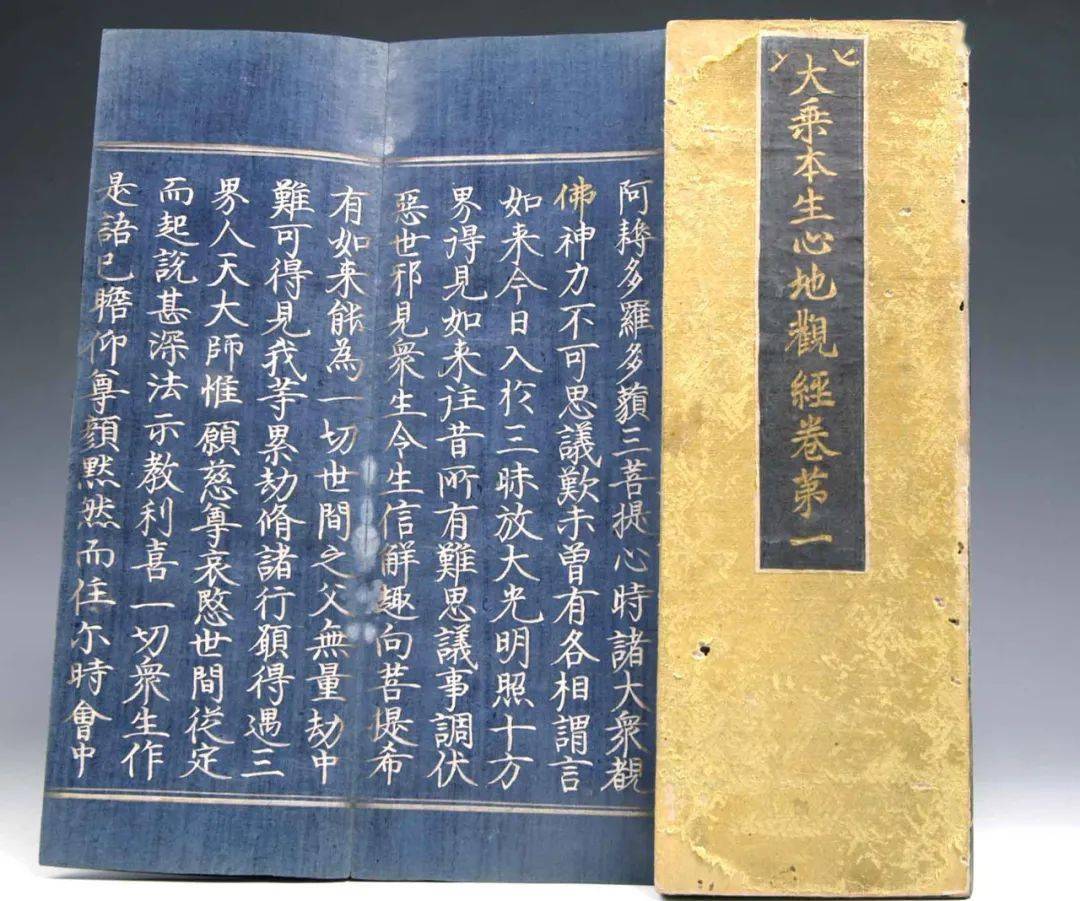 大乘本生心地觀經卷第一
阿耨多羅多藐三菩提心時諸大衆覩
佛神力不可思議歎未曾有各相謂言
如来今日入扵三昧放大光明照十方
界得見如来往昔所有難思議事調伏
惡世邪見衆生令生信解趣向菩提希
有如来能為一切世間之父無量劫中
難可得見我等累劫脩諸行願得遇三
界人天大師惟願慈尊哀愍世間従定
而起說甚深法示教利喜一切衆生作
是語已瞻仰尊顔默然而住尓時會中